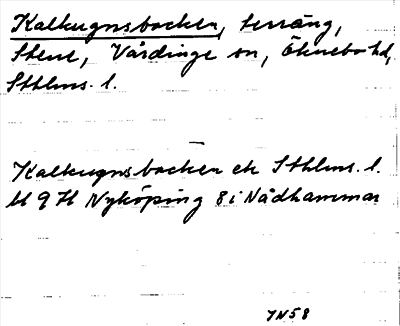 Kalkugnsbacken, terräng,
Stene, Vårdinge sn, Öknebo hd,
Sthlms. l.
Kalkugnsbacken ek Sthlms. l.
II 9 H Nyköping 8 i Nådhammar
JN58